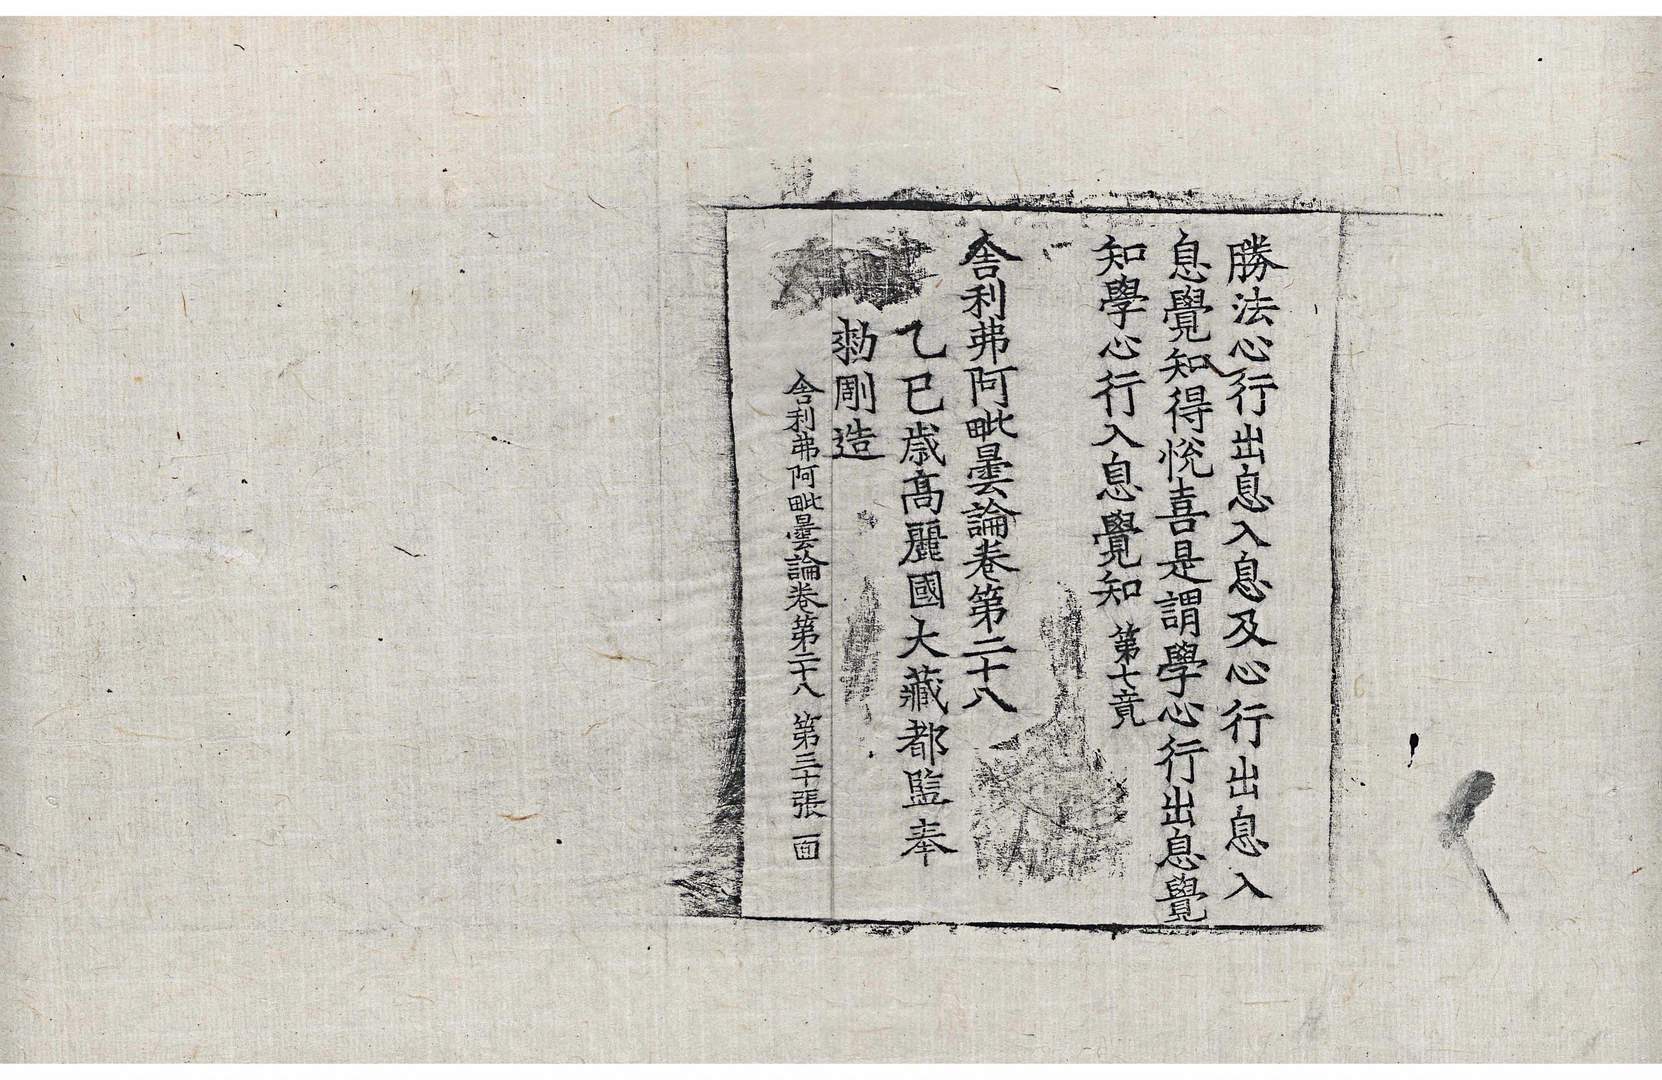 勝法心行出息入息及心行出息入
息覺知得悅喜是謂學心行出息覺
知學心行入息覺知第七竟
舍利弗阿毗曇論卷第二十八
乙巳歲高麗國大藏都監奉
勅彫造
舍利弗阿毗曇論卷第二十八 第三十張 面